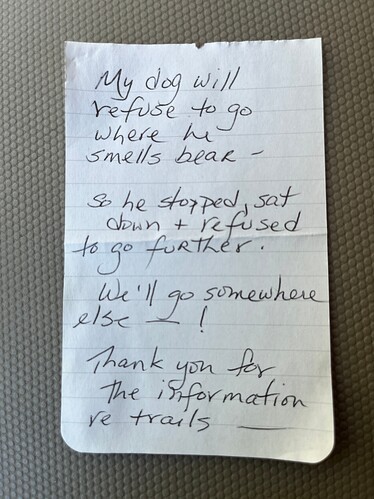 My dog will
refuse to go
where he
smells bear –
so he stopped, sat
down + refused
to go further.
We'll go somewhere
else — !
Thank you for
the information
re trails —